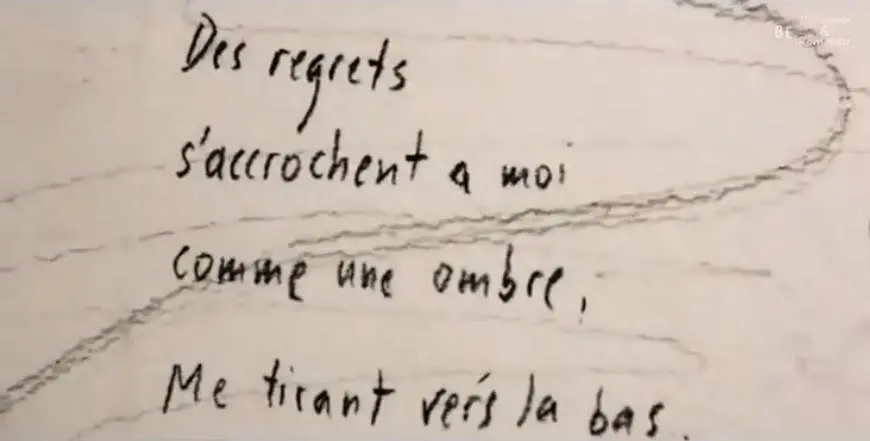 Des regrets
s'accrochent a moi
comme une ombre,
Me tirant vers la bas.
BE
&